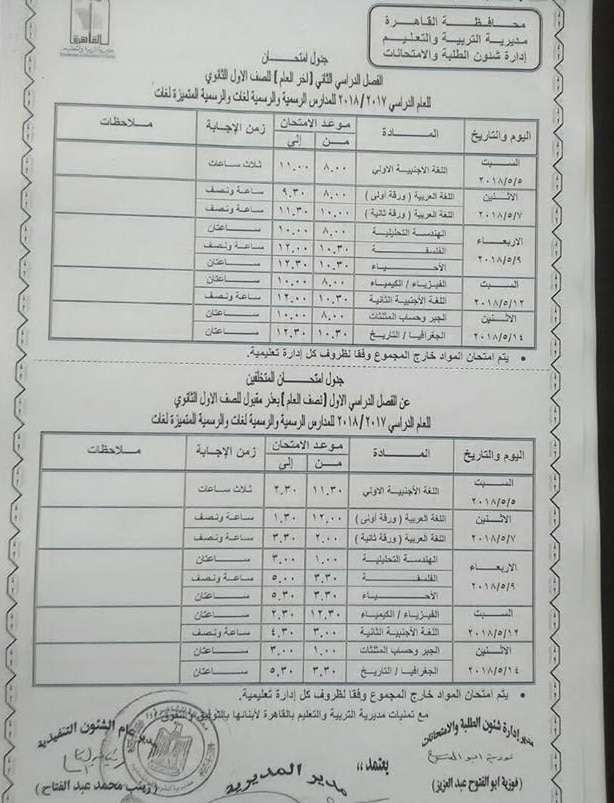 محافظة القاهرة
مديرية التربية والتعليم
إدارة شئون الطلبة والامتحانات
القاهرة
مديرية التربية والتعليم
جدول امتحان
الفصل الدراسي الثاني (اخر العام) للصف الاول الثانوي
للعام الدراسي ٢٠١٧ / ٢٠١٨ للمدارس الرسمية والرسمية لغات والرسمية المتميزة لغات
اليوم والتاريخ المادة موعد الامتحان زمن الإجابة ملاحظات
من إلى
السبت ٢٠١٨/٥/٥ اللغة الاجنبية الاولي ٨.٠٠ ١١.٠٠ ثلاث ساعات
الاثنين ٢٠١٨/٥/٧ اللغة العربية ( ورقة أولى ) ٨.٠٠ ٩.٣٠ ساعة ونصف
اللغة العربية ( ورقة ثانية ) ١٠.٠٠ ١١.٣٠ ساعة ونصف
الاربعاء ٢٠١٨/٥/٩ الهندسة التحليلية ٨.٠٠ ١٠.٠٠ ساعتان
الفلسفة ١٠.٣٠ ١٢.٠٠ ساعة ونصف
الأحياء ١٠.٣٠ ١٢.٣٠ ساعتان
السبت ٢٠١٨/٥/١٢ الفيزياء / الكيمياء ٨.٠٠ ١٠.٠٠ ساعتان
اللغة الأجنبية الثانية ١٠.٣٠ ١٢.٠٠ ساعة ونصف
الاثنين ٢٠١٨/٥/١٤ الجبر وحساب المثلثات ٨.٠٠ ١٠.٠٠ ساعتان
الجغرافيا / التاريخ ١٠.٣٠ ١٢.٣٠ ساعتان
• يتم امتحان المواد خارج المجموع وفقا لظروف كل إدارة تعليمية.
جدول امتحان المتخلفين
عن الفصل الدراسي الاول (نصف العام) بعذر مقبول للصف الاول الثانوي
للعام الدراسي ٢٠١٧ / ٢٠١٨ للمدارس الرسمية والرسمية لغات والرسمية المتميزة لغات
اليوم والتاريخ المادة موعد الامتحان زمن الإجابة ملاحظات
من إلى
السبت ٢٠١٨/٥/٥ اللغة الاجنبية الاولي ١١.٣٠ ٢.٣٠ ثلاث ساعات
الاثنين ٢٠١٨/٥/٧ اللغة العربية ( ورقة أولى ) ١٢.٠٠ ١.٣٠ ساعة ونصف
اللغة العربية ( ورقة ثانية ) ٢.٠٠ ٣.٣٠ ساعة ونصف
الاربعاء ٢٠١٨/٥/٩ الهندسة التحليلية ١.٠٠ ٣.٠٠ ساعتان
الفلسفة ٣.٣٠ ٥.٠٠ ساعة ونصف
الأحياء ٣.٣٠ ٥.٣٠ ساعتان
السبت ٢٠١٨/٥/١٢ الفيزياء / الكيمياء ١٢.٣٠ ٢.٣٠ ساعتان
اللغة الأجنبية الثانية ٣.٠٠ ٤.٣٠ ساعة ونصف
الاثنين ٢٠١٨/٥/١٤ الجبر وحساب المثلثات ١.٠٠ ٣.٠٠ ساعتان
الجغرافيا / التاريخ ٣.٣٠ ٥.٣٠ ساعتان
• يتم امتحان المواد خارج المجموع وفقا لظروف كل إدارة تعليمية.
مع تمنيات مديرية التربية والتعليم بالقاهرة لأبنائها بالتوفيق والتفوق
مدير إدارة شئون الطلبة والامتحانات
( فوزية ابو الفتوح عبد العزيز )
يعتمد ،،
مدير المديرية
مدير عام الشئون التنفيذية
( زينب محمد عبد الفتاح )